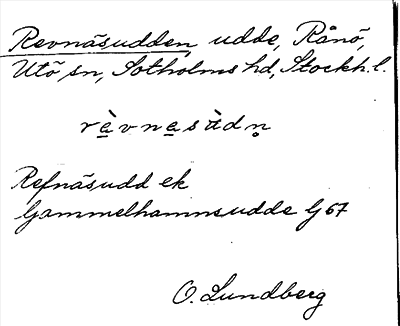 Revnäsudden, udde, Rånö,
Utö sn, Sotholms hd, Stockh. l.
rὰvnαsùdn̥
Refnäsudd ek
Gammelhamnsudde G 67
O. Lundberg